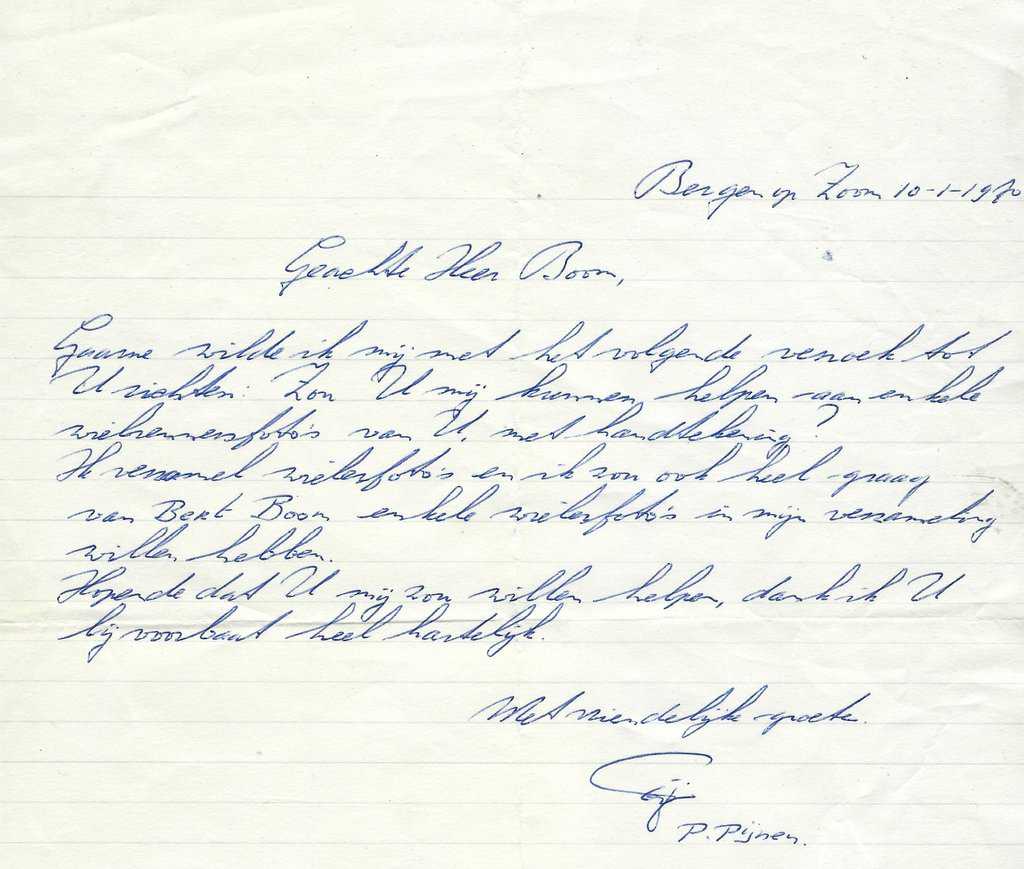 Bergen op Zoom 10-1-1970
Geachte Heer Boom,
Gaarne wilde ik mij met het volgende verzoek tot
U richten: Zou U mij kunnen helpen aan enkele
wielrennersfoto's van U, met handtekening?
Ik verzamel wielerfoto's en ik zou ook heel graag
van Bert Boom enkele wielerfoto's in mijn verzameling
willen hebben.
Hopende dat U mij zou willen helpen, dank ik U
bij voorbaat heel hartelijk.
Met vriendelijke groeten.
P. Pijnen.